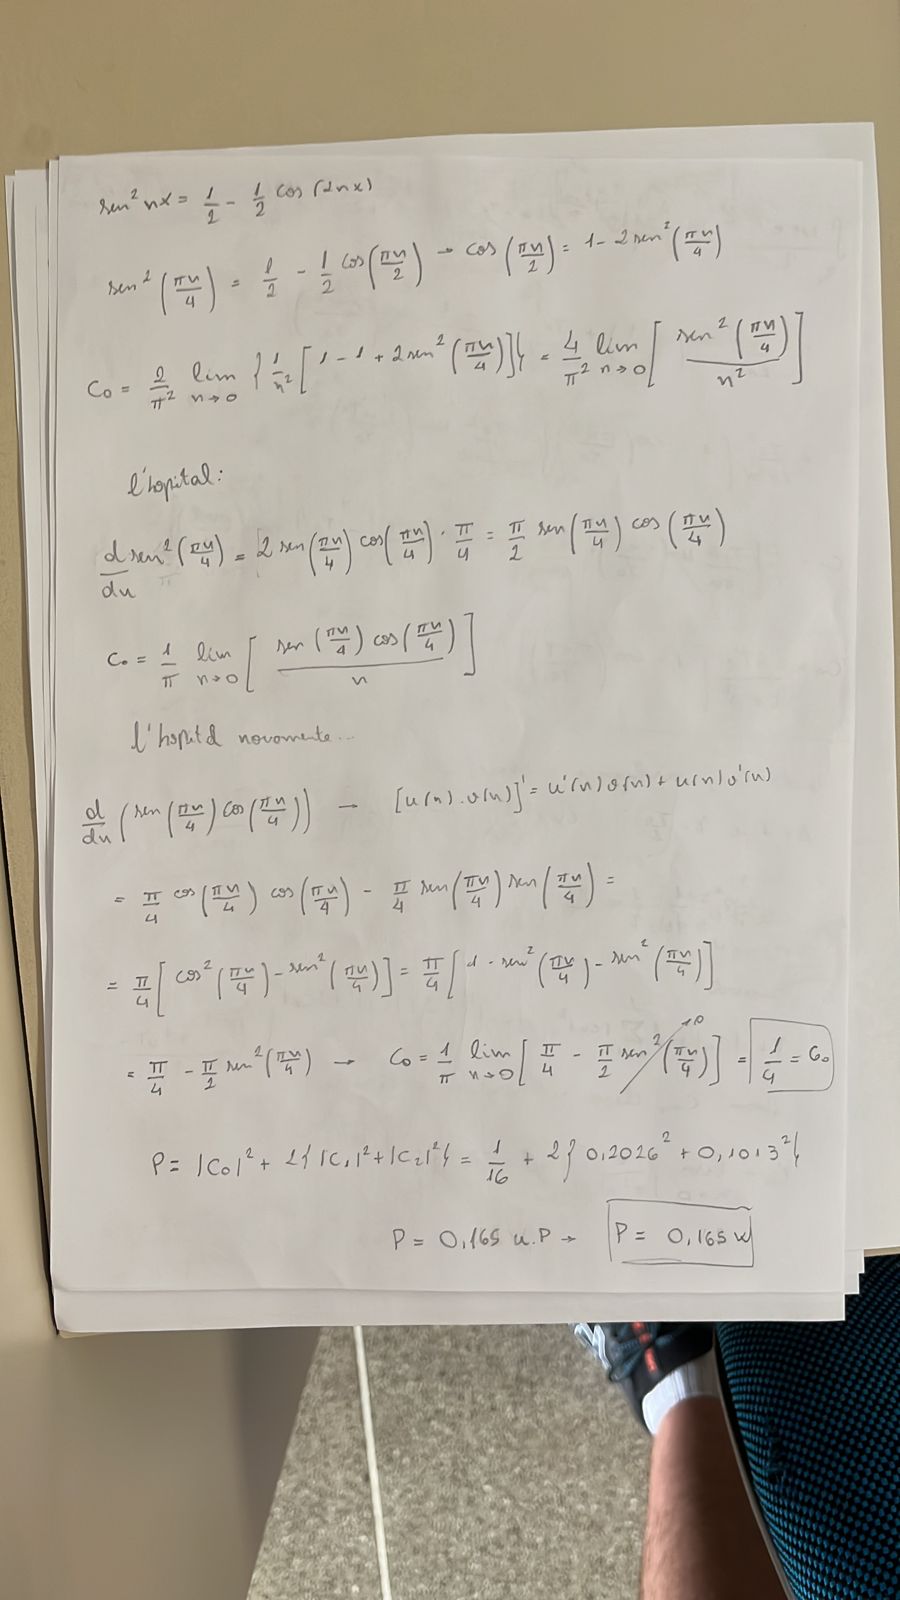 sen² nx = 1/2 - 1/2 cos(2nx)
sen²(πn/4) = 1/2 - 1/2 cos(πn/2) → cos(πn/2) = 1 - 2 sen²(πn/4)
C₀ = 2/π² lim n→0 { 1/n² [ 1 - 1 + 2 sen²(πn/4) ] } = 4/π² lim n→0 [ sen²(πn/4) / n² ]
l'hopital:
d/dn sen²(πn/4) = 2 sen(πn/4) cos(πn/4) · π/4 = π/2 sen(πn/4) cos(πn/4)
C₀ = 1/π lim n→0 [ sen(πn/4) cos(πn/4) / n ]
l'hopital novamente...
d/dn (sen(πn/4) cos(πn/4)) → [u(n).v(n)]' = u'(n)v(n) + u(n)v'(n)
= π/4 cos(πn/4) cos(πn/4) - π/4 sen(πn/4) sen(πn/4) =
= π/4 [ cos²(πn/4) - sen²(πn/4) ] = π/4 [ 1 - sen²(πn/4) - sen²(πn/4) ]
= π/4 - π/2 sen²(πn/4) → C₀ = 1/π lim n→0 [ π/4 - π/2 sen²(πn/4) ] = 1/4 = C₀
P = |C₀|² + 2{|C₁|² + |C₂|²} = 1/16 + 2{0,2026² + 0,1013²}
P = 0,165 u.P → P = 0,165 W